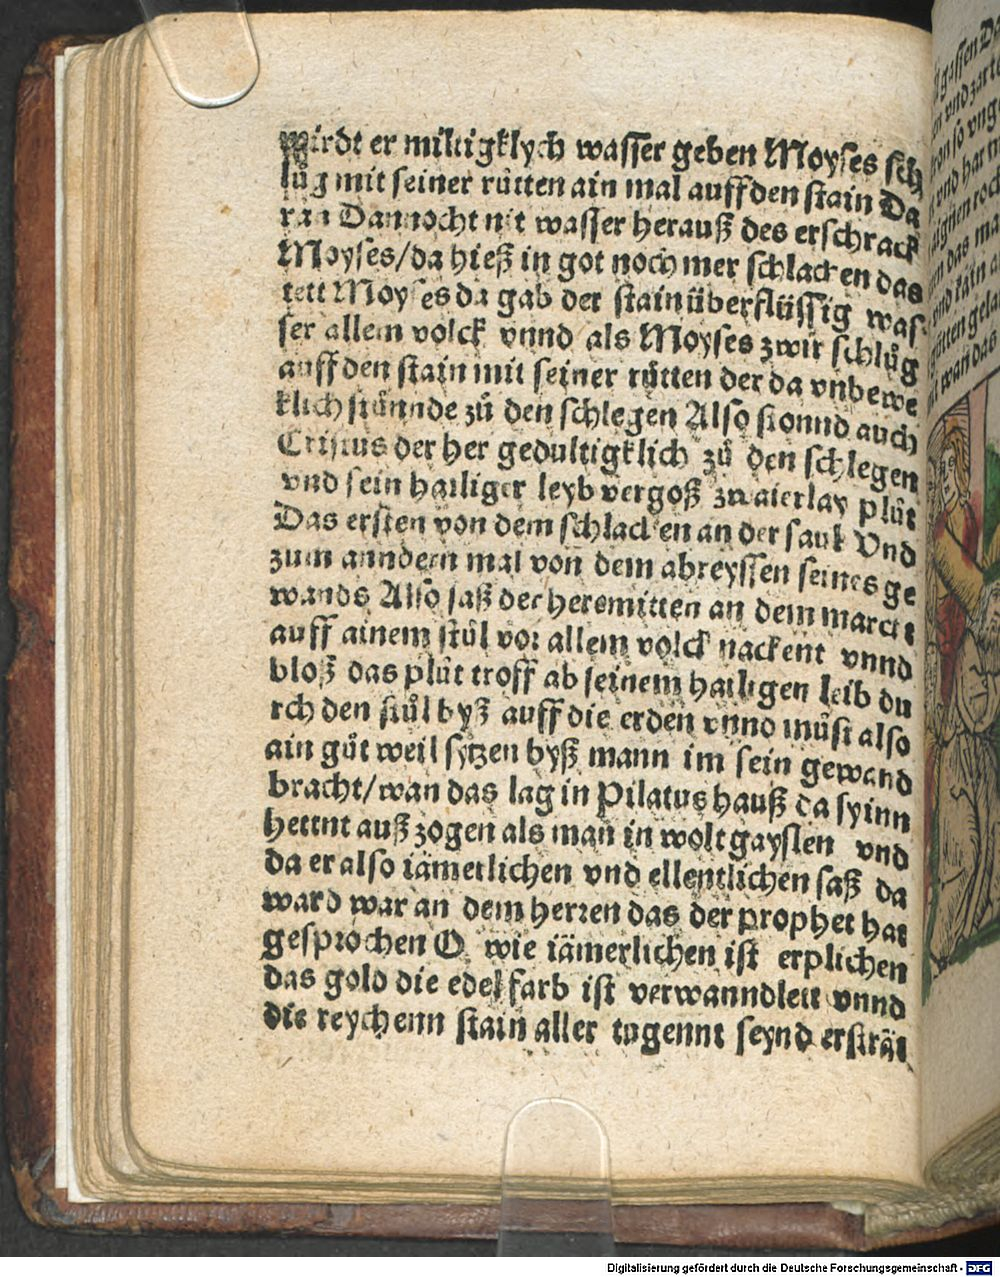 wirdt er miltigklych wasser geben Moyses sch
lůg mit seiner růtten ain mal auff den stain Da
ran Dannocht nit wasser herauß des erschrack
Moyses/da hieß in got noch mer schlacken das
tett Moyses da gab der stain überflüssig was-
ser allem volck vnnd als Moyses zwir schlůg
auff den stain mit seiner růtten der da vnbewe
klich stůnnde zů den schlegen Also stonnd auch
Cristus der her gedultigklich zů den schlegen
vnd sein hailiger leyb vergoß zwaierlay plůt
Das ersten von dem schlacken an der saul Vnd
zum anndern mal von dem abreyssen seines ge
wands Also saß der her emitten an dem marckt
auff ainem stůl vor allem volck nackent vnnd
bloß das plůt troff ab seinem hailigen leib du
rch den stůl byß auff die erden vnnd můst also
ain gůt weil sytzen byß mann im sein gewand
bracht/wan das lag in Pilatus hauß da sy inn
hettnt auß zogen als man in wolt gayslen vnd
da er also iämerlichen vnd ellentlichen saß da
ward war an dem herren das der prophet hat
gesprochen O wie iämerlichen ist erplichen
das gold die edel farb ist verwanndlett vnnd
die reychenn stain aller tugennt seynd erströt
Digitalisierung gefördert durch die Deutsche Forschungsgemeinschaft - DFG